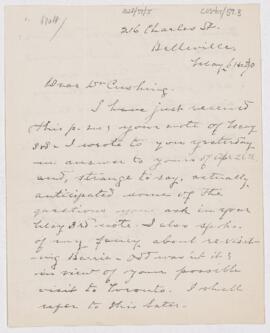 216 Charles St.
Belleville,
May 6
Dear Dr Cushing.
I have just received
this p. m. your note of May
3rd. I wrote to you yesterday
in answer to yours of Apr 26th
and, strange to say, actually
anticipated some of the
questions you ask in your
May 3rd note. I also spoke
of my fancy about re-visit-
ing Barrie — Ont was it & in
view of your possible
visit to Toronto. I shall
refer to this later.